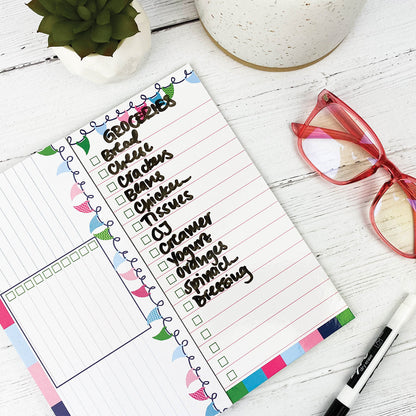 GROCERIES
Bread
Cheese
Crackers
Beans
Chicken
Tissues
OJ
Creamer
Yogurt
Oranges
Spinach
Dressing